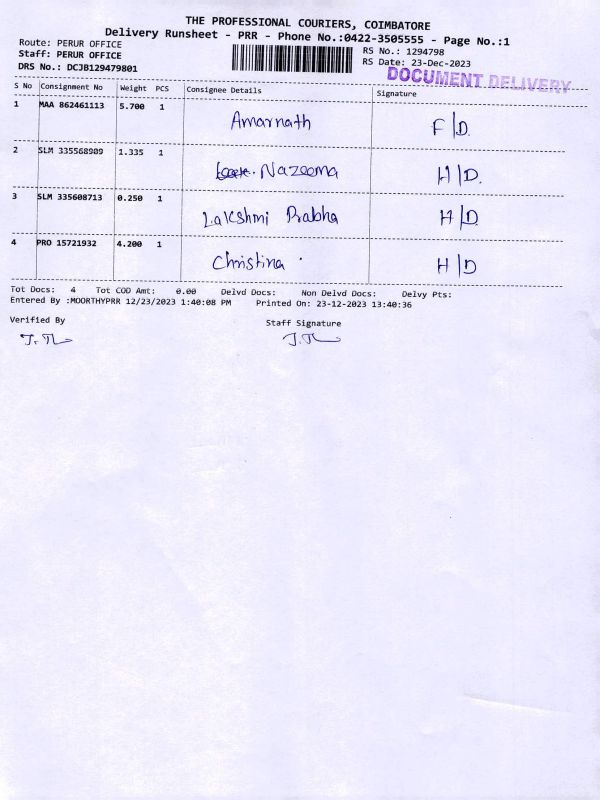 THE PROFESSIONAL COURIERS, COIMBATORE
Delivery Runsheet - PRR - Phone No.:0422-3505555 - Page No.:1
Route: PERUR OFFICE
Staff: PERUR OFFICE
DRS No.: DCJB129479801
RS No.: 1294798
RS Date: 23-Dec-2023
DOCUMENT DELIVERY
S No Consignment No Weight PCS Consignee Details Signature
1 MAA 862461113 5.700 1 Amarnath F|D.
2 SLM 335568909 1.335 1 Nazeema H|D.
3 SLM 335608713 0.250 1 Lakshmi Prabha H|D.
4 PRO 15721932 4.200 1 Christina H|D
Tot Docs: 4 Tot COD Amt: 0.00 Delvd Docs: Non Delvd Docs: Delvy Pts:
Entered By :MOORTHYPRR 12/23/2023 1:40:08 PM Printed On: 23-12-2023 13:40:36
Verified By Staff Signature